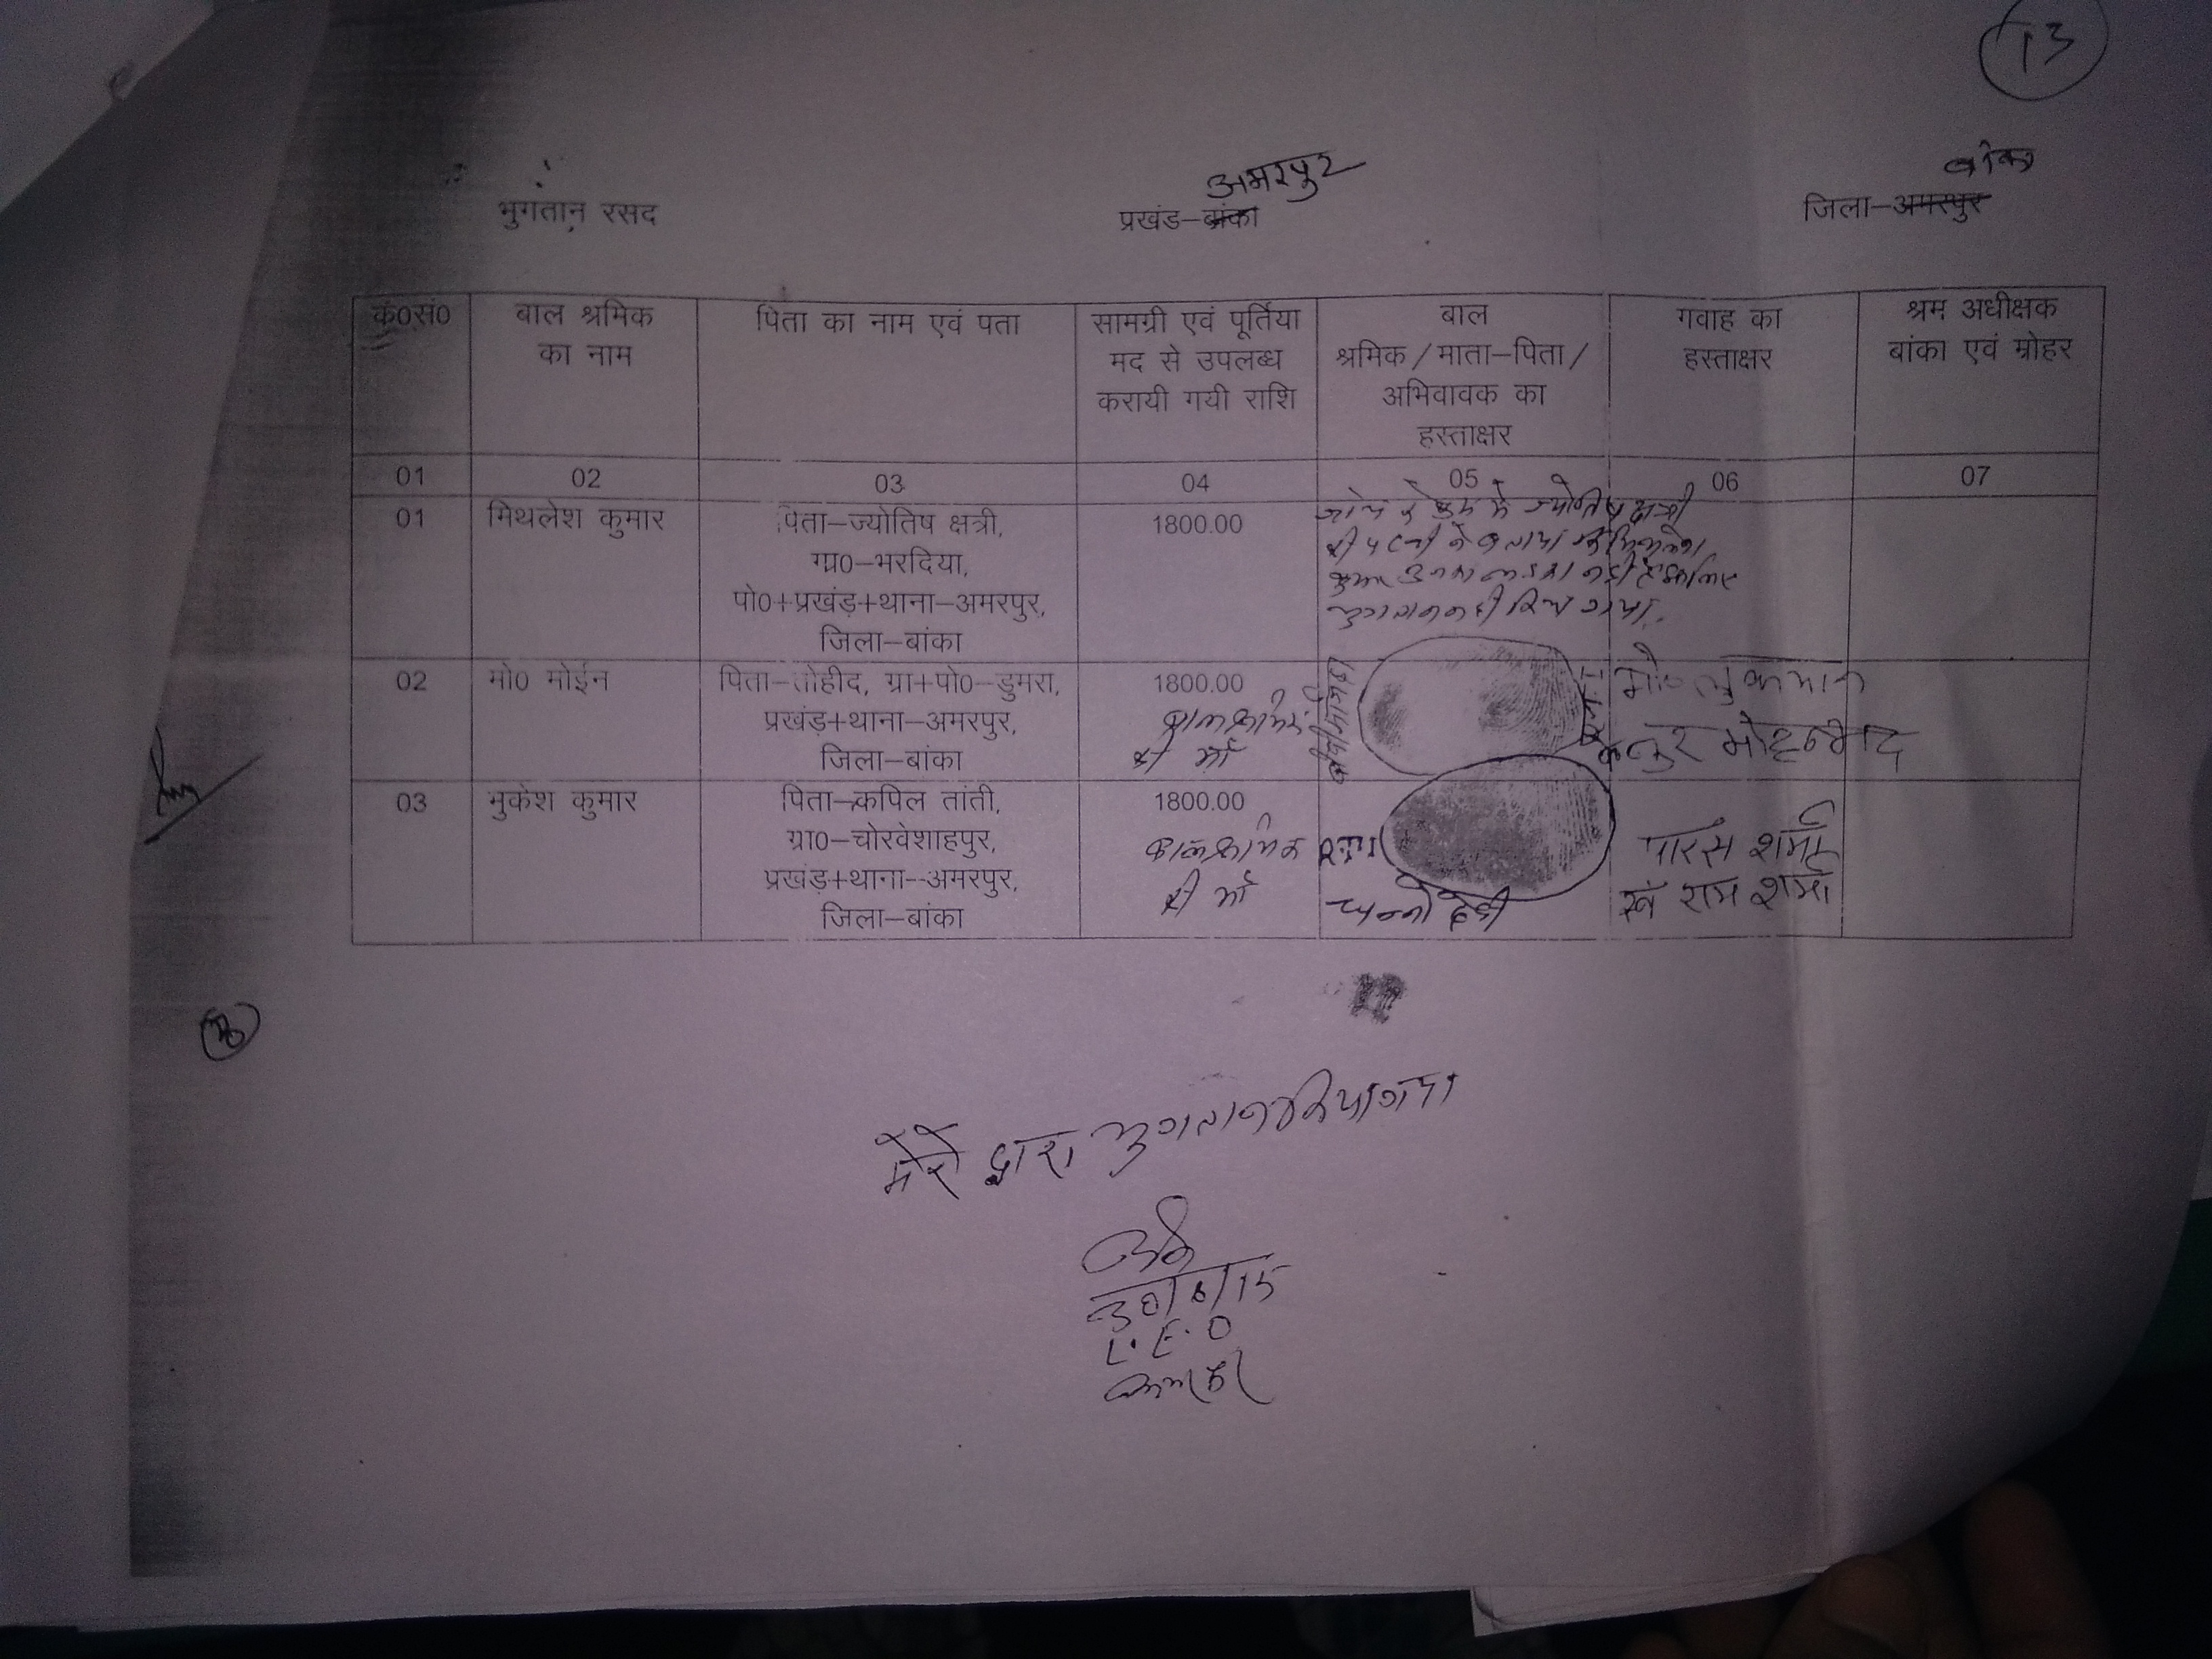 13
अमरपुर
बांका
भुगतान रसद
प्रखंड–बांका
जिला–अमरपुर
कं0सं0
बाल श्रमिक
का नाम
पिता का नाम एवं पता
सामग्री एवं पूर्तिया
मद से उपलब्ध
करायी गयी राशि
बाल
श्रमिक/माता–पिता/
अभिवावक का
हस्ताक्षर
गवाह का
हस्ताक्षर
श्रम अधीक्षक
बांका एवं मोहर
01
02
03
04
05
06
07
01
मिथलेश कुमार
पिता–ज्योतिष क्षत्री,
ग्रा0–भरदिया,
पो0+प्रखंड़+थाना–अमरपुर,
जिला–बांका
1800.00
जाँच के क्रम में ज्योतिष क्षत्री
की पत्नी ने बताया कि मिथलेश
कुमार उनका लडका नही है इसलिए
भुगतान नही किया गया.
02
मो0 मोईन
पिता–तोहीद, ग्रा+पो0–डुमरा,
प्रखंड़+थाना–अमरपुर,
जिला–बांका
1800.00
बाल श्रमिक
की माँ
मो० लुकमान
नुर मोहम्मद
03
मुकेश कुमार
पिता–कपिल तांती,
ग्रा0–चोरवेशाहपुर,
प्रखंड़+थाना--अमरपुर,
जिला–बांका
1800.00
बाल श्रमिक
की माँ
देवी
पारस शर्मा
राम शर्मा
मेरे द्वारा भुगतान किया गया
30/6/15
L.E.O